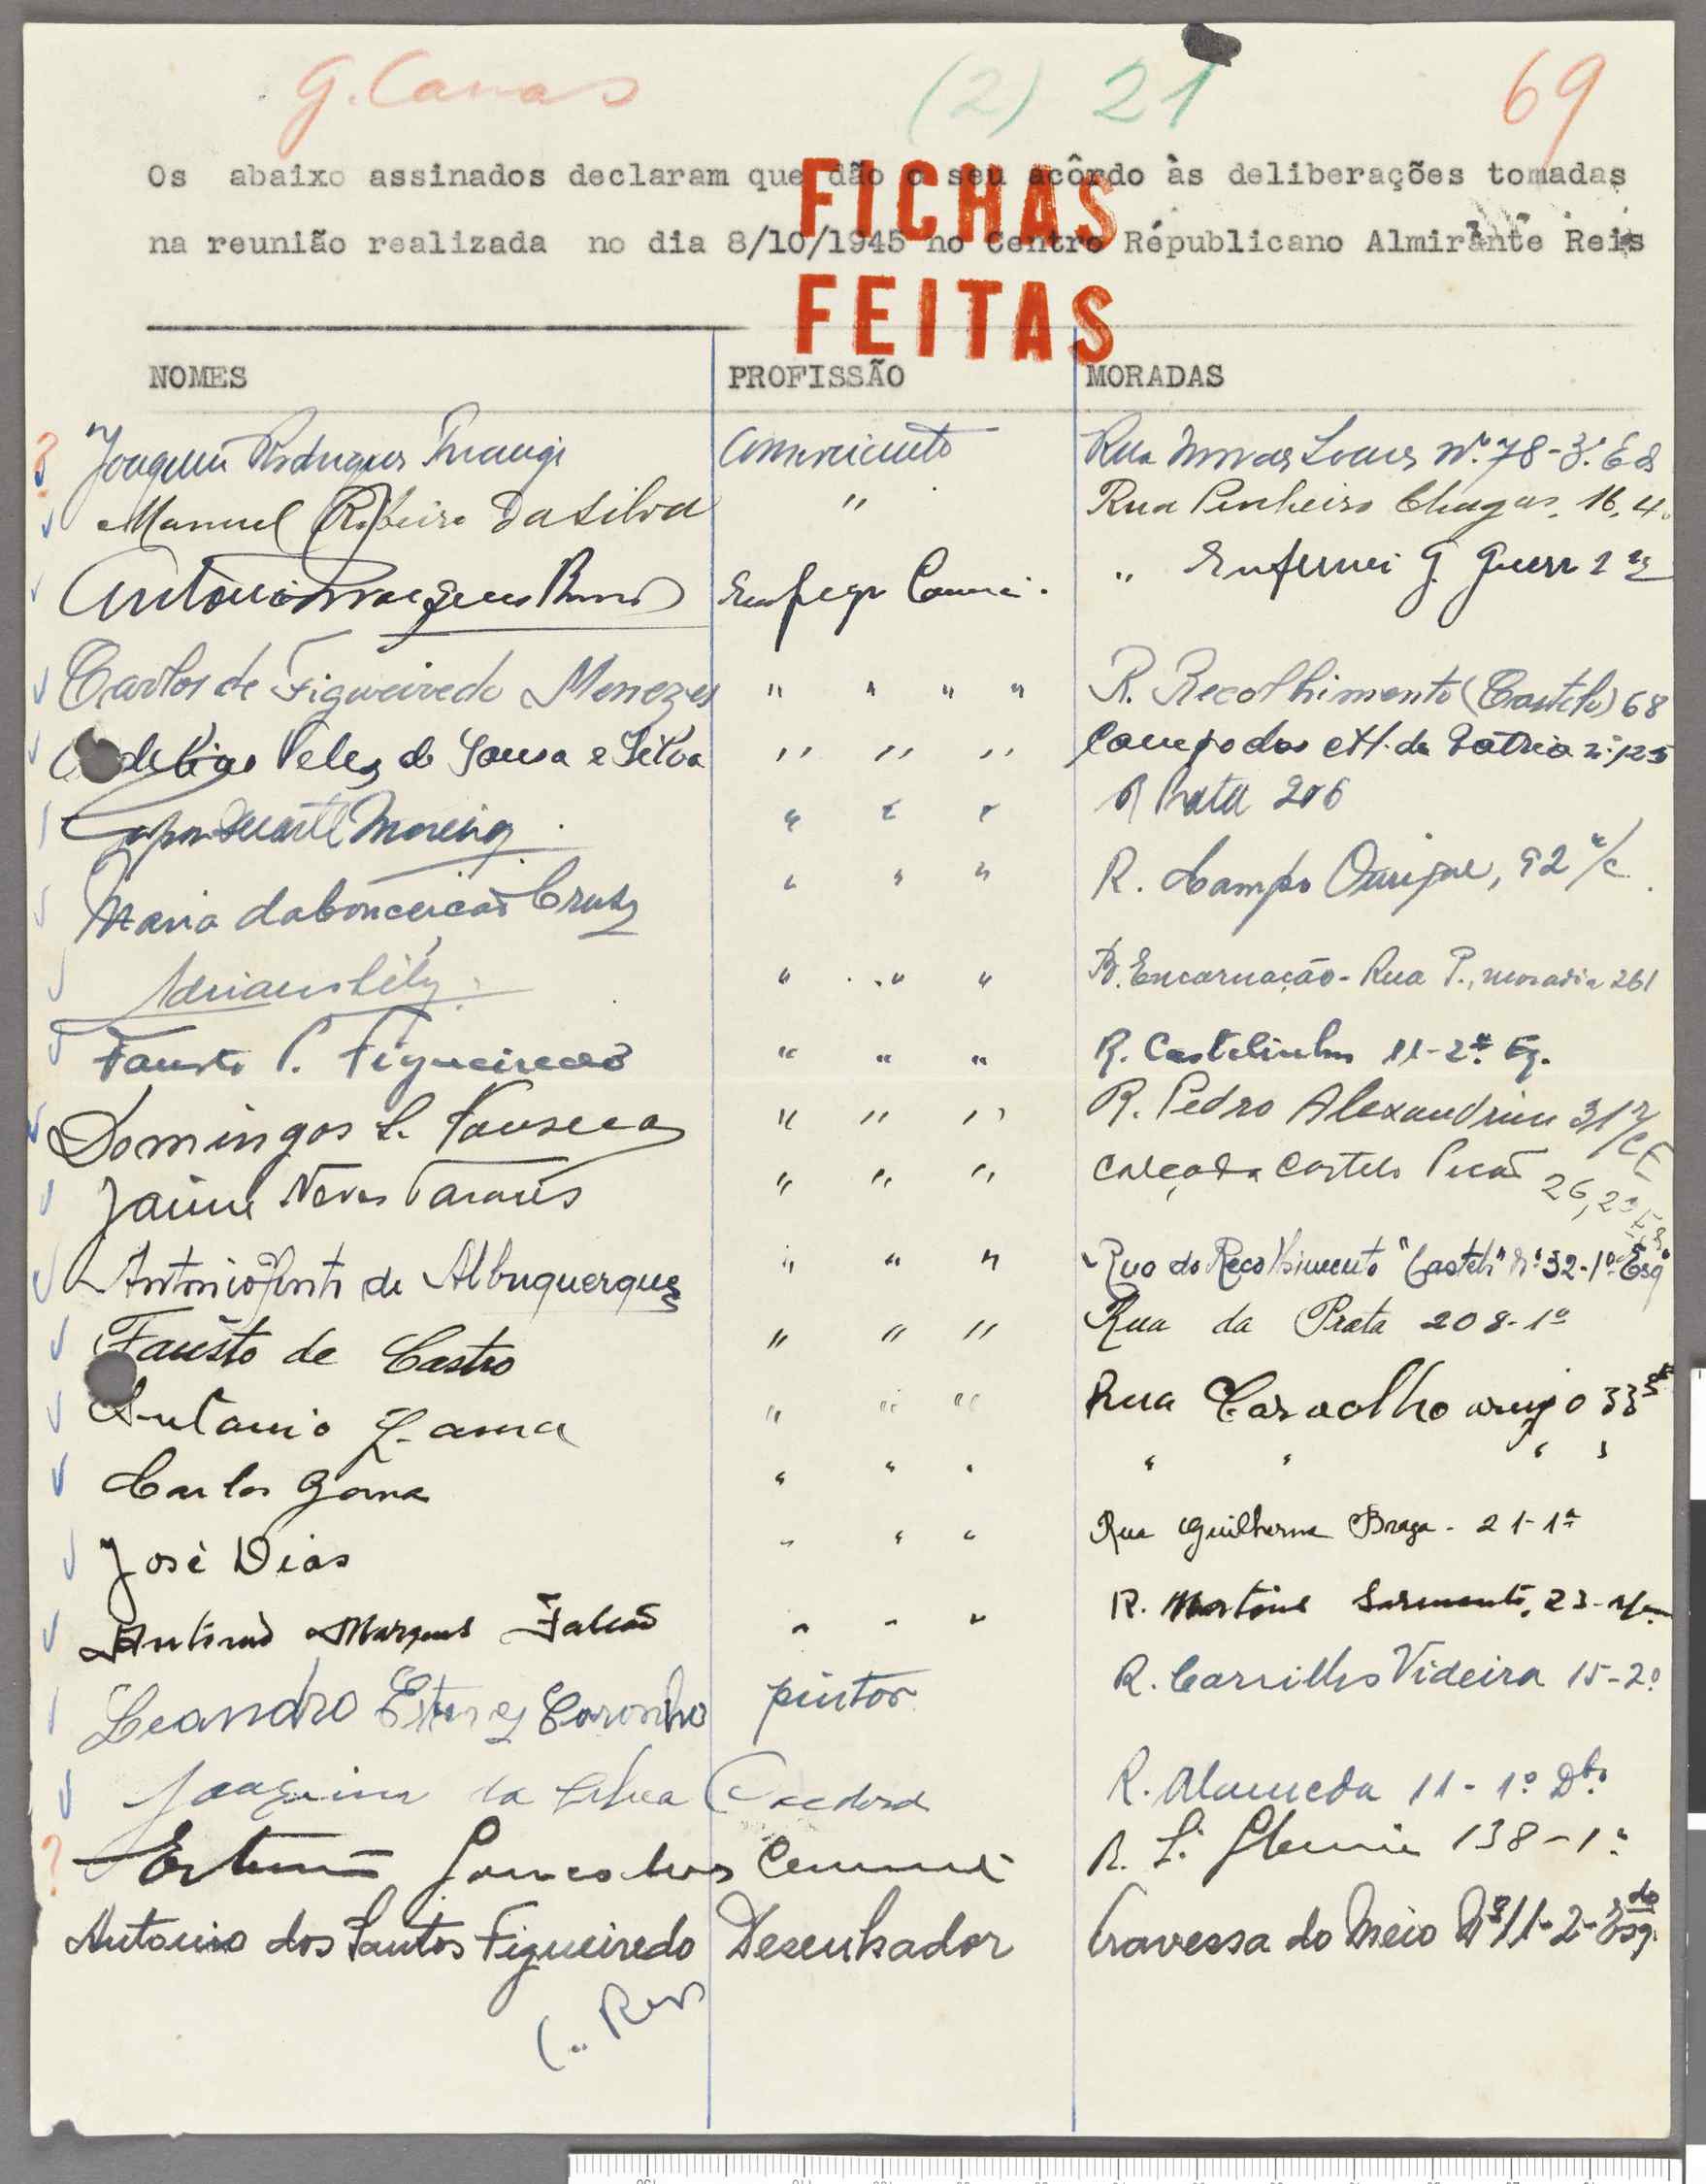 G. Canas (2) 21 69
Os abaixo assinados declaram que dão o seu acôrdo às deliberações tomadas
na reunião realizada no dia 8/10/1945 no Centro Républicano Almirante Reis
FICHAS
FEITAS
NOMES PROFISSÃO MORADAS
Joaquim Rodrigues Rua Nº 78-3º
Manuel Ribeiro Da Silva " Rua Pinheiro Chagas, 16, 4º
Antonio "
Carlos de Figueiredo Menezes " " " " R. Recolhimento (Castelo) 68
Veles de Sousa e Silva " " " Campo dos M. da Patria nº 125
Duarte Moreira " " " R Prata 206
Maria da Conceicão Cruz " " " R. Campo Ourique, 92 r/c
" " " B. Encarnação - Rua P., moradia 261
Fausto P. Figueiredo " " " R. Castelinhos 11-2º Eq.
Domingos L. Fonseca " " " R. Pedro Alexandrino 31 r/c E
Jaime Neves Tavares " " " Calçada Castelo Picão 26, 2º
Antonio Pinto de Albuquerque " " " Rua do Recolhimento "Castelo" Nº 32-1º Esqº
Fausto de Castro " " " Rua da Prata 208-1º
Antonio Gama " " " Rua Carvalho araujo 33
Carlos Gama " " " " " " "
José Dias " " " Rua Guilherme Braga - 21-1º
Antonio Marques Falcão " " " R. Martins Sarmento, 23-
Leandro Esteves Coronho pintor R. Carrilho Videira 15-2º
Joaquim da Silva R. Alameda 11-1º Dto
Gonçalves R. 138-1º
Antonio dos Santos Figueiredo Desenhador Travessa do Meio Nº 11-2º Esq.